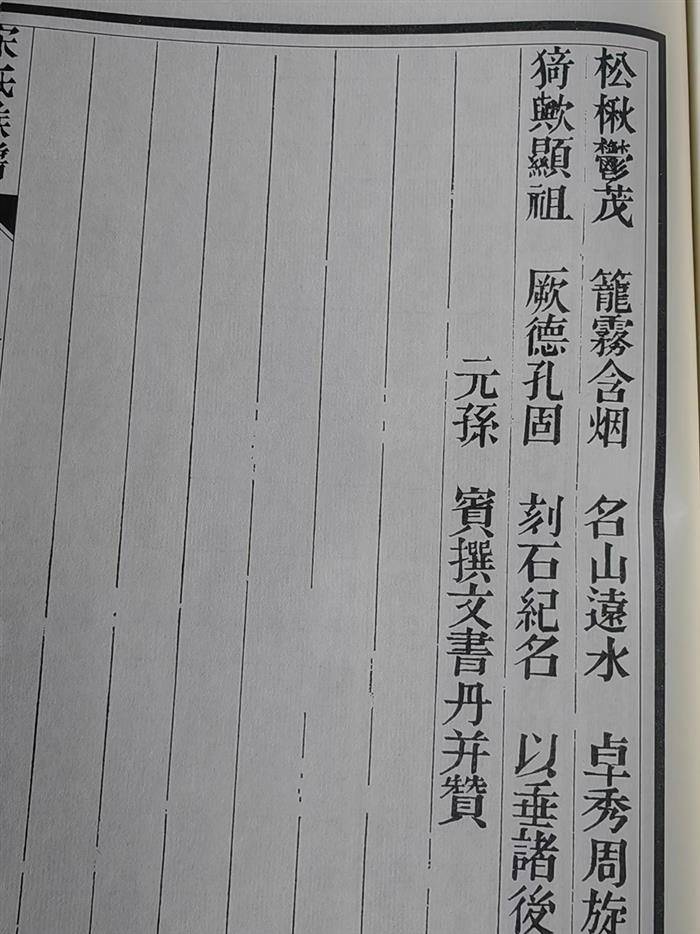 松楸鬱茂 籠霧含烟 名山遠水 卓秀周旋
猗歟顯祖 厥德孔固 刻石紀名 以垂諸後
元孫 賓撰文書丹并贊
宋氏族譜